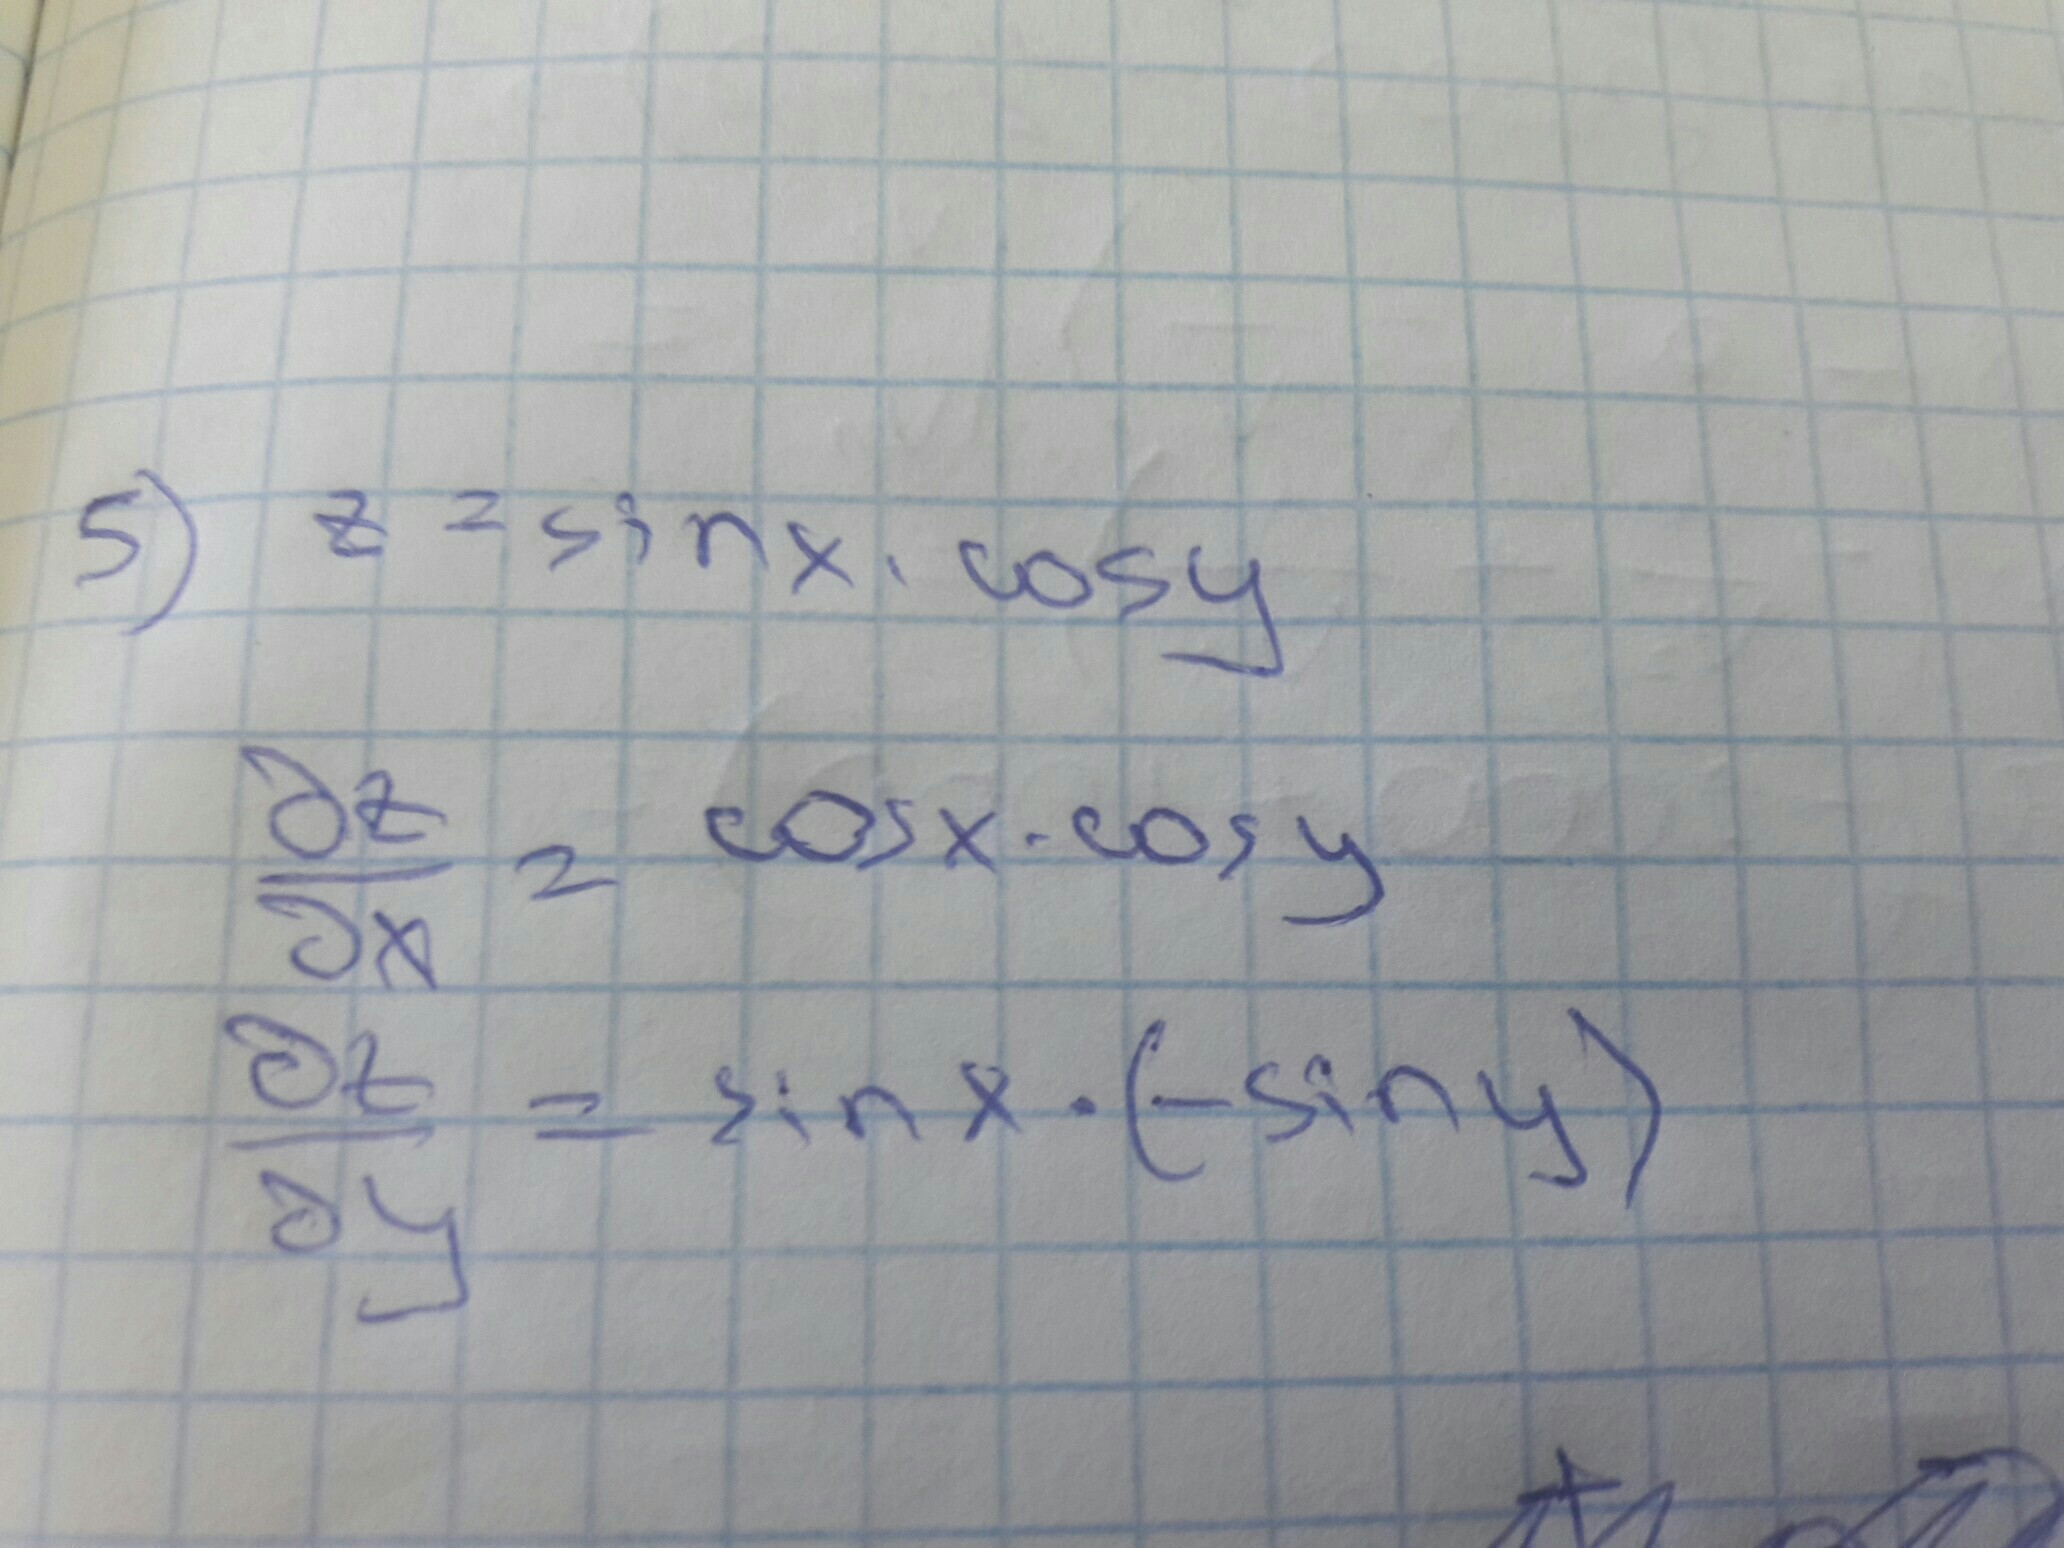 5) z = sinx · cosy
∂z/∂x = cosx · cosy
∂z/∂y = sinx · (-siny)